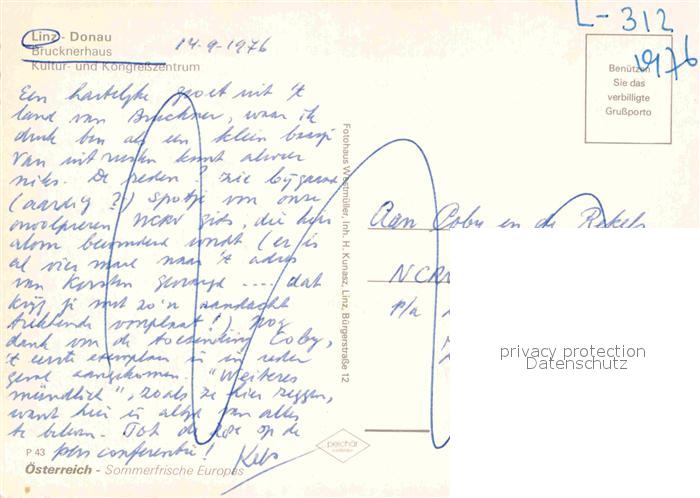 Linz - Donau
Brucknerhaus
Kultur- und Kongreßzentrum
14-9-1976
L-312
1976
Benützen
Sie das
verbilligte
Grußporto
Een hartelijke groet uit 't
land van Bruckner, waar ik
druk ben als een klein baasje
Van uitrusten komt alweer
niks. De reden? Zie bijgaand
(aardig?) spotje van onze
NCRV gids, die hier
alom bewonderd wordt (er is
al vier maal naar 't adres
van Kersten gevraagd .... dat
krijg je met zo'n aandacht
trekkende voorplaat!) Nog
dank voor de toezending Coby,
't eerste exemplaar is in ieder
geval aangekomen. "Weiteres
mündlich", zoals ze hier zeggen,
want hier is altijd van alles
te beleven. Tot de 20e op de
persconferentie!
Kees
Fotohaus Westmüller, Inh. H. Kunasz, Linz, Bürgerstraße 12
Aan Coby en de Rekels
NCRV
p/a
privacy protection
Datenschutz
P 43
peichär
Österreich - Sommerfrische Europas